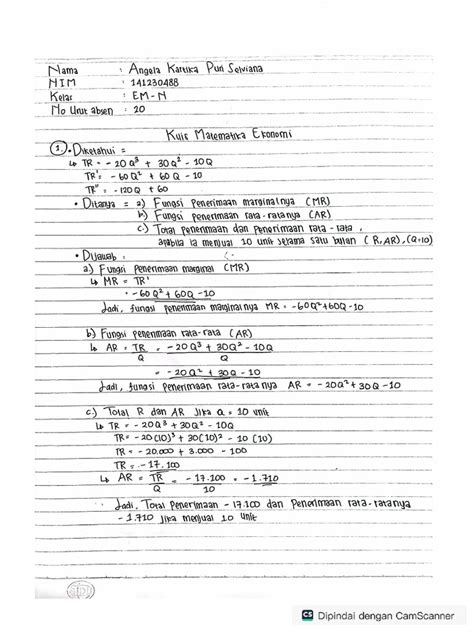 Nama : Angela Kartika Puri Selviana
NIM : 141230488
Kelas : EM-N
No Urut absen : 20
Kuis Matematika Ekonomi
1. • Diketahui =
↳ TR = - 20Q³ + 30Q² - 10Q
TR' = - 60Q² + 60Q - 10
TR'' = -120Q + 60
• Ditanya = a) Fungsi penerimaan marginalnya (MR)
b) Fungsi penerimaan rata-ratanya (AR)
c) Total penerimaan dan penerimaan rata-rata,
apabila ia menjual 10 unit selama satu bulan (R,AR), (Q=10)
• Dijawab :
a) Fungsi penerimaan marginal (MR)
↳ MR = TR'
= -60Q² + 60Q - 10
Jadi, fungsi penerimaan marginalnya MR = -60Q²+60Q-10
b) Fungsi penerimaan rata-rata (AR)
↳ AR = TR/Q = -20Q³ + 30Q² - 10Q/Q
= -20Q² + 30Q - 10
Jadi, fungsi penerimaan rata-ratanya AR = -20Q² + 30Q - 10
c) Total R dan AR Jika Q = 10 unit
↳ TR = -20Q³ + 30Q² - 10Q
TR = -20(10)³ + 30(10)² - 10(10)
TR = -20.000 + 3.000 - 100
TR = -17.100
↳ AR = TR/Q = -17.100/10 = -1.710
Jadi, Total Penerimaan -17.100 dan Penerimaan rata-ratanya
-1.710 Jika menjual 10 unit
CS Dipindai dengan CamScanner